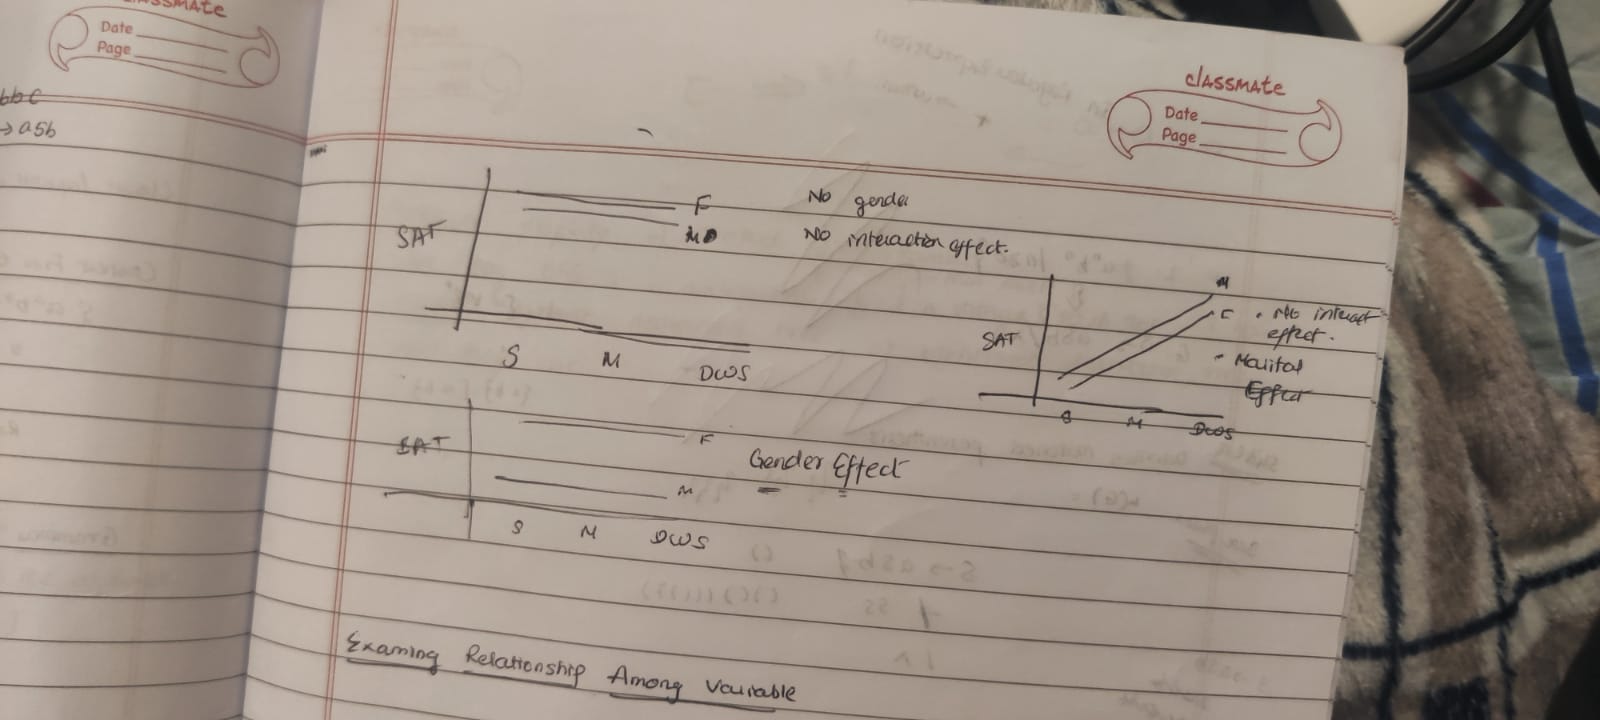 classmate
Date
Page
bbc
→ asb
classmate
Date
Page
SAT
F
M
No gender
No interaction effect.
S M DWS
SAT
M
F
• No interact
effect.
- Marital
Effect
S M DWS
SAT
F
M
Gender Effect
S M DWS
Examing Relationship Among Variable